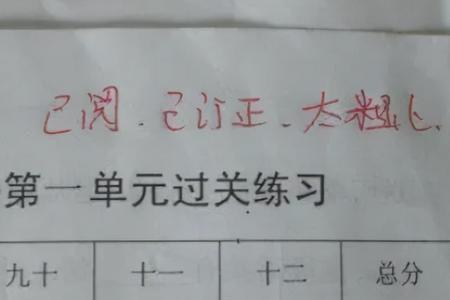 已阅.已订正、太粗心.
第一单元过关练习
九十 十一 十二 总分